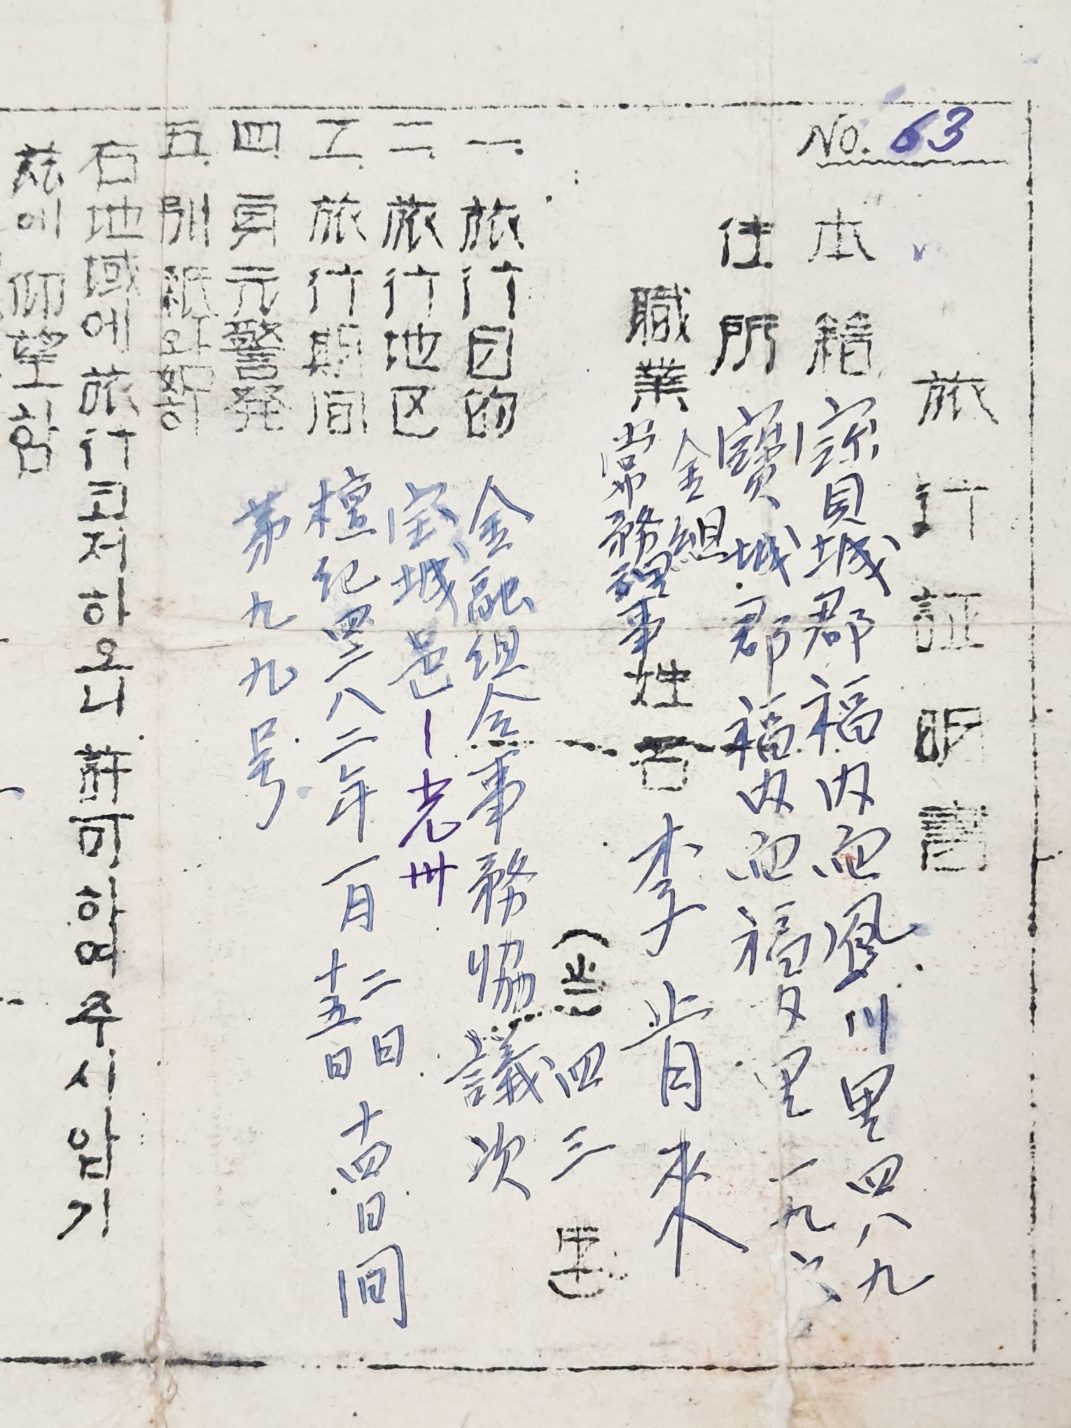 No. 63
旅行証明書
本籍 寶城郡福内面鳳川里四八九
住所 寶城郡福内面福内里一九六
職業 金組常務理事 姓名 李肯來
(当 四三 生)
一. 旅行目的 金融組合事務協議次
二. 旅行地区 宝城邑 – 光州
三. 旅行期间 檀紀四二八二年一月 二日 十五日 十四日间
四. 身元警発 第九九号
五. 別紙와如
右地域에 旅行코저하오니 許可하여주시압기
玆에 仰望함